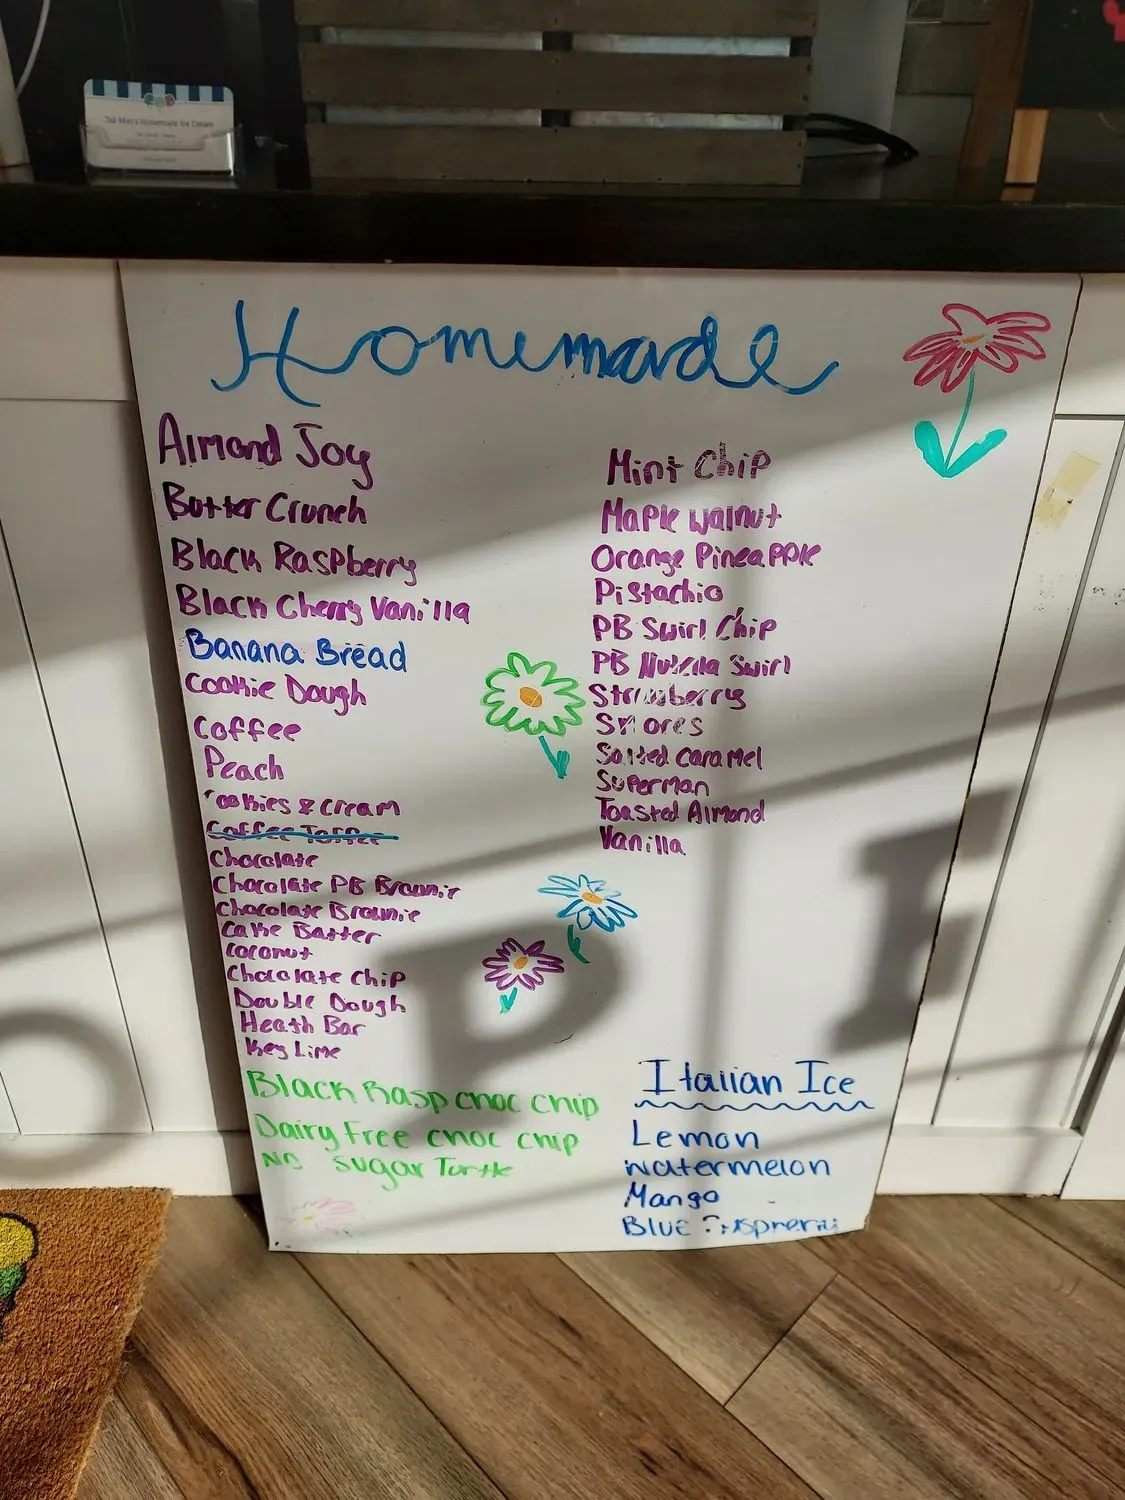 Homemade Ice Cream
Homemade
Almond Joy
Butter Crunch
Black Raspberry
Black Cherry Vanilla
Banana Bread
Cookie Dough
Coffee
Peach
ookies & cream
Coffee Toffee
Chocolate
Chocolate PB Brownie
Chocolate Brownie
Cake Batter
Coconut
Chocolate Chip
Double Dough
Heath Bar
Key Lime
Black Rasp choc chip
Dairy Free choc chip
No Sugar Turtle
Mint Chip
Maple walnut
Orange Pineapple
Pistachio
PB Swirl Chip
PB Nutella Swirl
Strawberry
Smores
Salted Caramel
Superman
Toasted Almond
Vanilla
Italian Ice
Lemon
Watermelon
Mango
Blue